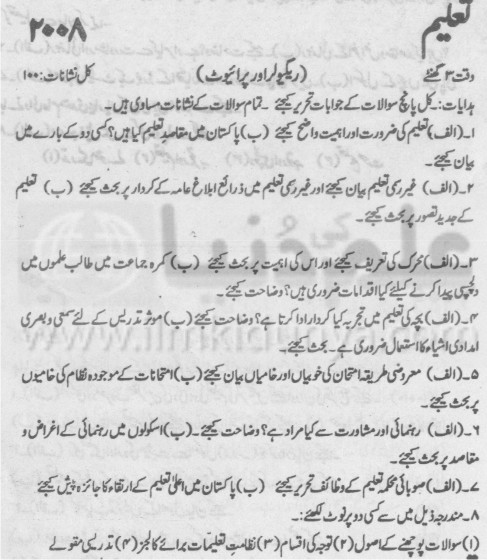 تعلیم ۲۰۰۸
وقت ۳ گھنٹے (ریگولر اور پرائیوٹ) کل نشانات: ۱۰۰
ہدایات:۔ کل پانچ سوالات کے جوابات تحریر کیجئے ۔ تمام سوالات کے نشانات مساوی ہیں۔
۱۔ (الف) تعلیم کی ضرورت اور اہمیت واضح کیجئے (ب) پاکستان میں مقاصد تعلیم کیا ہیں؟ کسی دو کے بارے میں
بیان کیجئے۔
۲۔ (الف) غیر رسمی تعلیم بیان کیجئے اور غیر رسمی تعلیم میں ذرائع ابلاغ عامہ کے کردار پر بحث کیجئے (ب) تعلیم
کے جدید تصور پر بحث کیجئے۔
علم کی دنیا
۳۔ (الف) محرک کی تعریف کیجئے اور اس کی اہمیت پر بحث کیجئے (ب) کمرہ جماعت میں طالب علموں میں
دلچسپی پیدا کرنے کیلئے کیا اقدامات ضروری ہیں؟ وضاحت کیجئے۔
۴۔ (الف) بچہ کی تعلیم میں تجربہ کیا کردار ادا کرتا ہے؟ وضاحت کیجئے (ب) موثر تدریس کے لئے سمعی و بصری
امدادی اشیاء کا استعمال ضروری ہے۔ بحث کیجئے۔
۵۔ (الف) معروضی طریقہ امتحان کی خوبیاں اور خامیاں بیان کیجئے (ب) امتحانات کے موجودہ نظام کی خامیوں
پر بحث کیجئے۔
۶۔ (الف) رہنمائی اور مشاورت سے کیا مراد ہے؟ وضاحت کیجئے۔ (ب) اسکولوں میں رہنمائی کے اغراض و
مقاصد پر بحث کیجئے۔
۷۔ (الف) صوبائی محکمہ تعلیم کے وظائف تحریر کیجئے (ب) پاکستان میں اعلیٰ تعلیم کے ارتقاء کا جائزہ پیش کیجئے
۸۔ مندرجہ ذیل میں سے کسی دو پر نوٹ لکھئے:۔
(۱) سوالات پوچھنے کے اصول (۲) توجہ کی اقسام (۳) نظامت تعلیمات برائے کالجز (۴) تدریسی مقولے